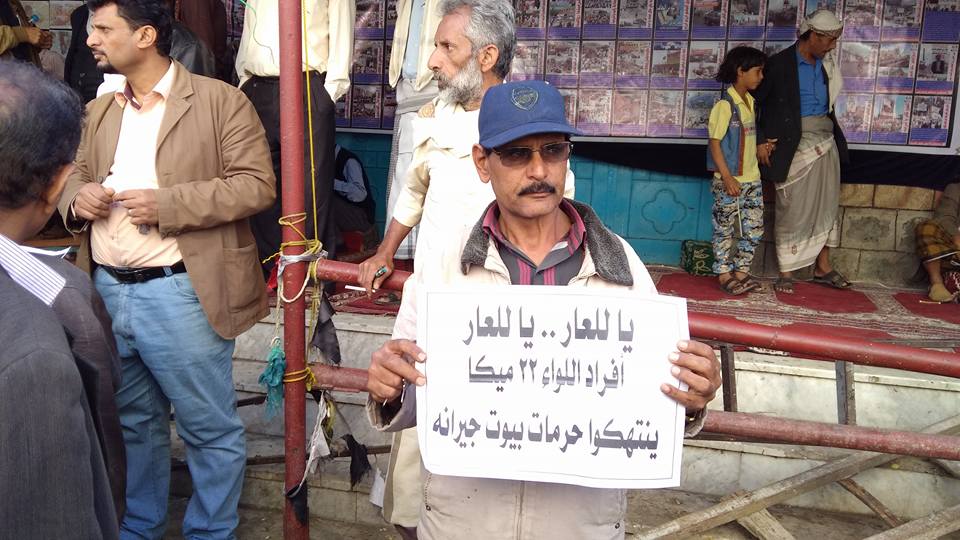 يا للعار .. يا للعار
أفراد اللواء ٢٢ ميكا
ينتهكوا حرمات بيوت جيرانه